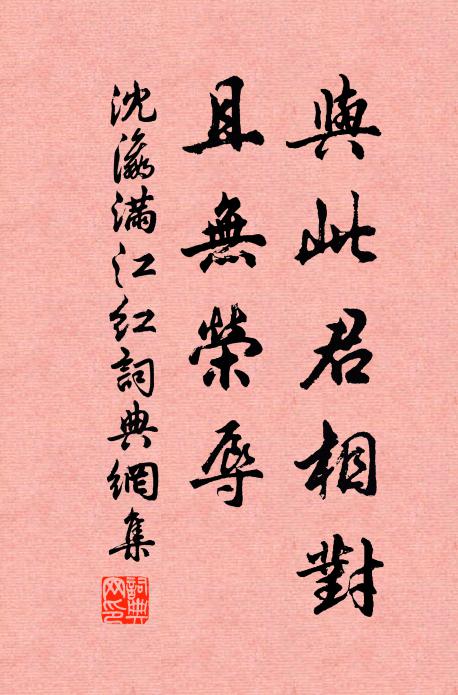 與此君相對
且無榮辱
沈瀛滿江紅詞典網集
詞典
网印